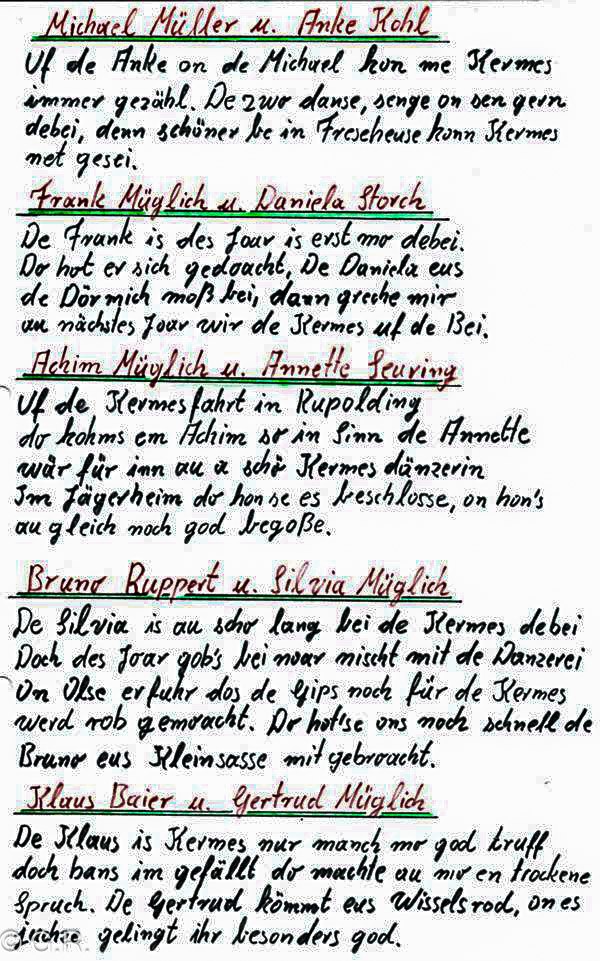 Michael Müller u. Anke Kohl
Uf de Anke on de Michael kon me Kermes
immer gezähl. De zwo danse, senge on sen gern
debei, denn schöner be in Freseheuse konn Kermes
net gesei.
Frank Müglich u. Daniela Storch
De Frank is des Joar is erst mo debei.
Do hot er sich gedoacht, De Daniela eus
de Dörmich moß bei, dann greche mir
au nächstes Joar wir de Kermes uf de Bei.
Achim Müglich u. Annette Seuring
Uf de Kermesfahrt in Rupolding
do kohms em Achim so in Sinn de Annette
wär für inn au a schö Kermes dänzerin
Im Jägerheim do hon se es beschlosse, on hon's
au gleich noch god begoße.
Bruno Ruppert u. Silvia Müglich
De Silvia is au scho lang bei de Kermes debei
Doch des Joar gob's bei noar mischt mit de Danzerei
On Olse erfuhr dos de Gips noch für de Kermes
werd rob gemoacht. Do hot'se ons noch schnell de
Bruno eus Kleinsasse mitgebroacht.
Klaus Baier u. Gertrud Müglich
De Klaus is Kermes nur manch mo god truff
doch bans im gefällt do machte au mo en trockene
Spruch. De Gertrud kömmt eus Wisselsrod, on es
juchze gelingt ihr besonders god.